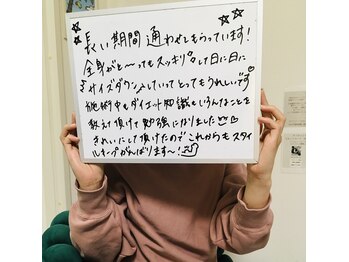 長い期間通わせてもらっています!
全身がと〜ってもスッキリして日に日に
サイズダウンしていってとってもうれしいです♡
施術中もダイエット知識といろんなことを
教えて頂けて勉強になりました♡
きれいにして頂けたのでこれからもスタイ
ルキープがんばります〜!